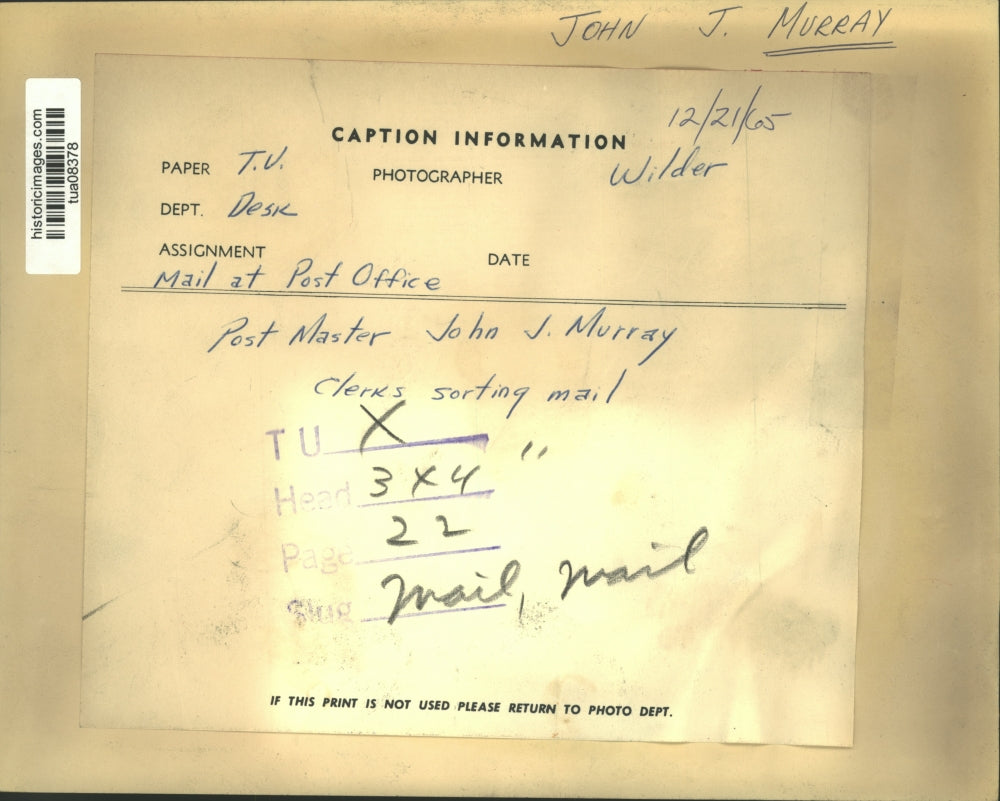 JOHN J. MURRAY
historicimages.com
tua08378
12/21/65
CAPTION INFORMATION
PAPER T.U. PHOTOGRAPHER Wilder
DEPT. Desk
ASSIGNMENT DATE
Mail at Post Office
Post Master John J. Murray
Clerks sorting mail
TU X "
Head 3 X 4
Page 22
Slug Mail, mail
IF THIS PRINT IS NOT USED PLEASE RETURN TO PHOTO DEPT.